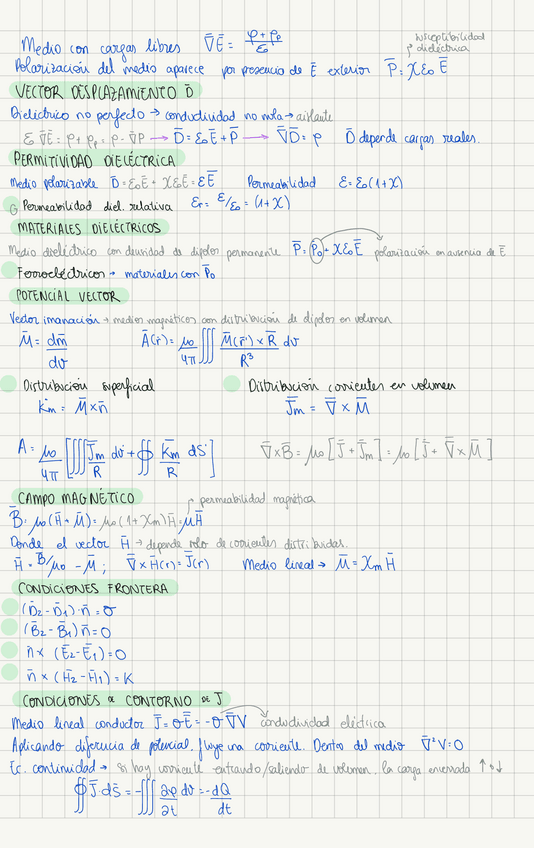 Medio con cargas libres ∇̄Ē = (ρ + ρp)/ε₀ susceptibilidad dieléctrica
Polarización del medio aparece por presencia de Ē exterior P̄ = χε₀Ē
VECTOR DESPLAZAMIENTO D̄
Dieléctrico no perfecto → conductividad no nula → aislante
ε₀∇̄Ē = ρ + ρp = ρ - ∇̄P̄ → D̄ = ε₀Ē + P̄ → ∇̄D̄ = ρ D̄ depende cargas reales.
PERMITIVIDAD DIELÉCTRICA
Medio polarizable D̄ = ε₀Ē + χε₀Ē = εĒ Permeabilidad ε = ε₀(1+χ)
G Permeabilidad diel. relativa εr = ε/ε₀ = (1+χ)
MATERIALES DIELÉCTRICOS
Medio dieléctrico con densidad de dipolos permanente P̄ = P̄₀ + χε₀Ē polarización en ausencia de Ē
Ferroeléctricos → materiales con P̄₀
POTENCIAL VECTOR
Vector imanación → medios magnéticos con distribución de dipolos en volumen
M̄ = dm̄/dv Ā(r̄) = μ₀/4π ∭ M̄(r̄') × R̄ / R³ dv
Distribución superficial Distribución corrientes en volumen
K̄m = M̄ × n̄ J̄m = ∇̄ × M̄
A = μ₀/4π [∭ J̄m/R dv' + ∯ K̄m/R dS'] ∇̄×B̄ = μ₀[J̄ + J̄m] = μ₀[J̄ + ∇̄ × M̄]
CAMPO MAGNÉTICO permeabilidad magnética
B̄ = μ₀(H̄ + M̄) = μ₀(1 + χm)H̄ = μH̄
Donde el vector H̄ → depende solo de corrientes distribuidas.
H̄ = B̄/μ₀ - M̄ ; ∇̄ × H̄(r) = J̄(r) Medio lineal → M̄ = χm H̄
CONDICIONES FRONTERA
(D̄₂ - D̄₁)·n̄ = σ
(B̄₂ - B̄₁)n̄ = 0
n̄ × (Ē₂ - Ē₁) = 0
n̄ × (H̄₂ - H̄₁) = K
CONDICIONES DE CONTORNO DE J
Medio lineal conductor J̄ = σĒ = -σ∇̄V conductividad eléctrica
Aplicando diferencia de potencial, fluye una corriente. Dentro del medio ∇̄²V = 0
Ec. continuidad → si hay corriente entrando/saliendo de volumen, la carga encerrada ↑ o ↓
∯ J̄·ds̄ = -∭ ∂ρ/∂t dv = -dQ/dt